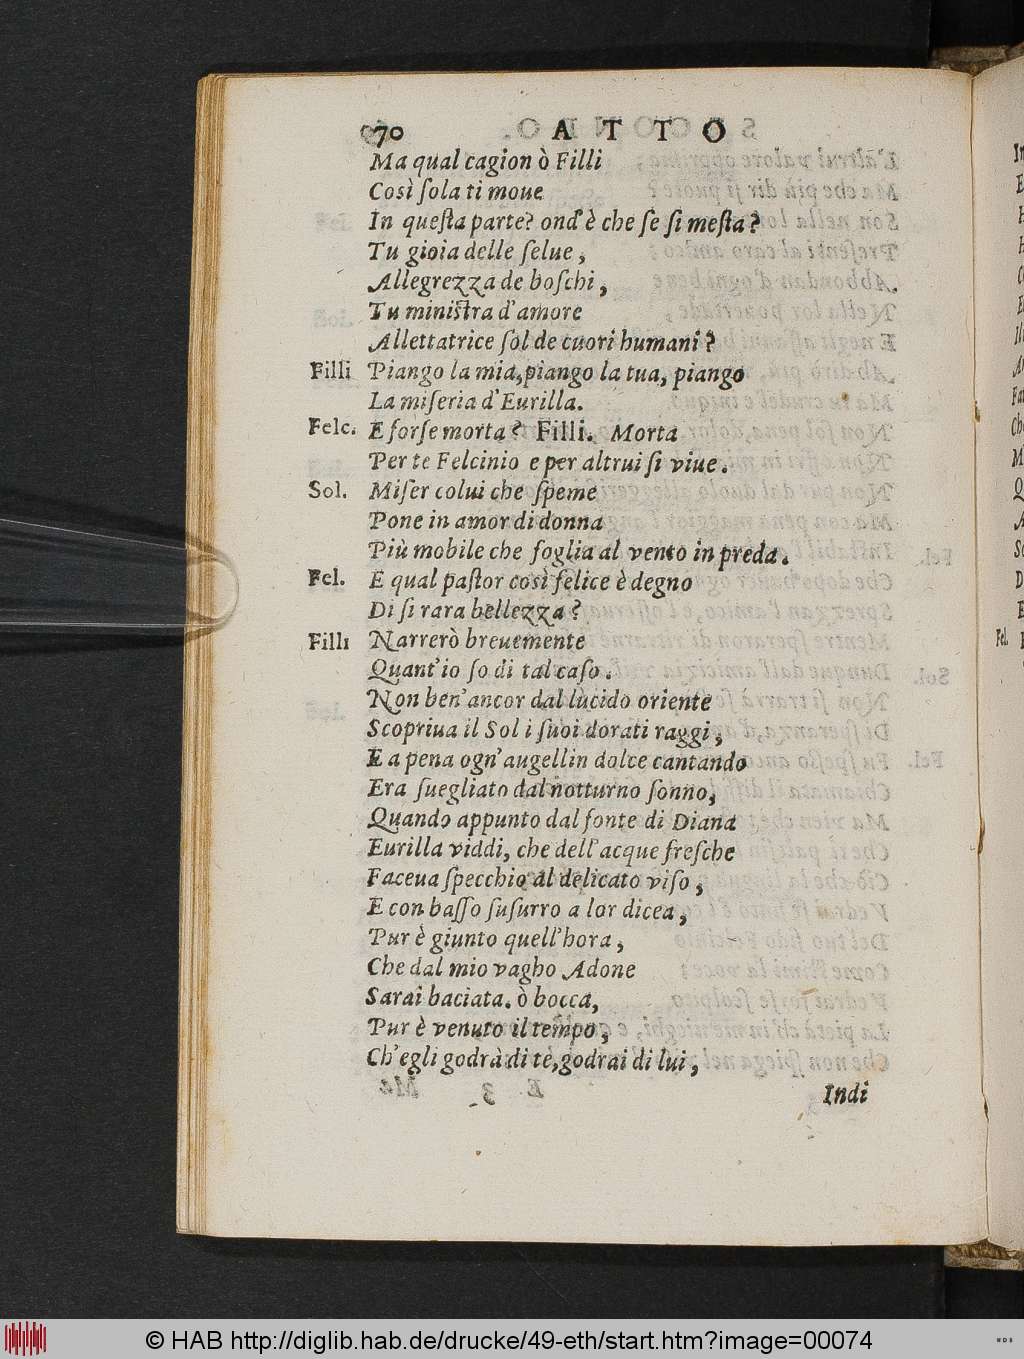 70 ATTO
Ma qual cagion ò Filli
Così ſola ti moue
In queſta parte? ond' è che ſe ſi meſta?
Tu gioia delle ſelue,
Allegrezza de boſchi,
Tu miniſtra d'amore
Allettatrice ſol de cuori humani?
Filli Piango la mia, piango la tua, piango
La miſeria d'Eurilla.
Felc. E forſe morta? Filli. Morta
Per te Felcinio e per altrui ſi viue.
Sol. Miſer colui che ſpeme
Pone in amor di donna
Più mobile che foglia al vento in preda.
Fel. E qual paſtor così felice è degno
Di ſi rara bellezza?
Filli Narrerò breuemente
Quant'io ſo di tal caſo.
Non ben' ancor dal lucido oriente
Scopriua il Sol i ſuoi dorati raggi,
E a pena ogn' augellin dolce cantando
Era ſuegliato dal notturno ſonno,
Quando appunto dal fonte di Diana
Eurilla viddi, che dell' acque freſche
Faceua ſpecchio al delicato viſo,
E con baſſo ſuſurro a lor dicea,
Pur è giunto quell'hora,
Che dal mio vagho Adone
Sarai baciata. ò bocca,
Pur è venuto il tempo,
Ch'egli godrà di te, godrai di lui,
Indi
© HAB http://diglib.hab.de/drucke/49-eth/start.htm?image=00074